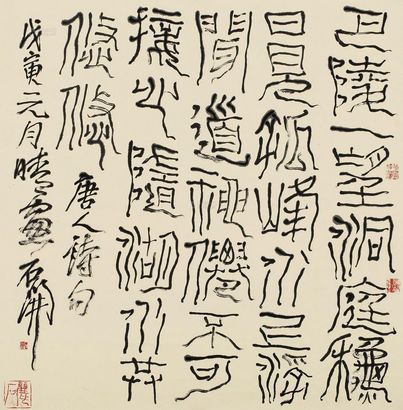 巴陵一望洞庭穐
日見孤峰水上浮
聞道神僊不可
接心隨湖水共
悠悠
唐人詩句
戊寅元月晴窗石開